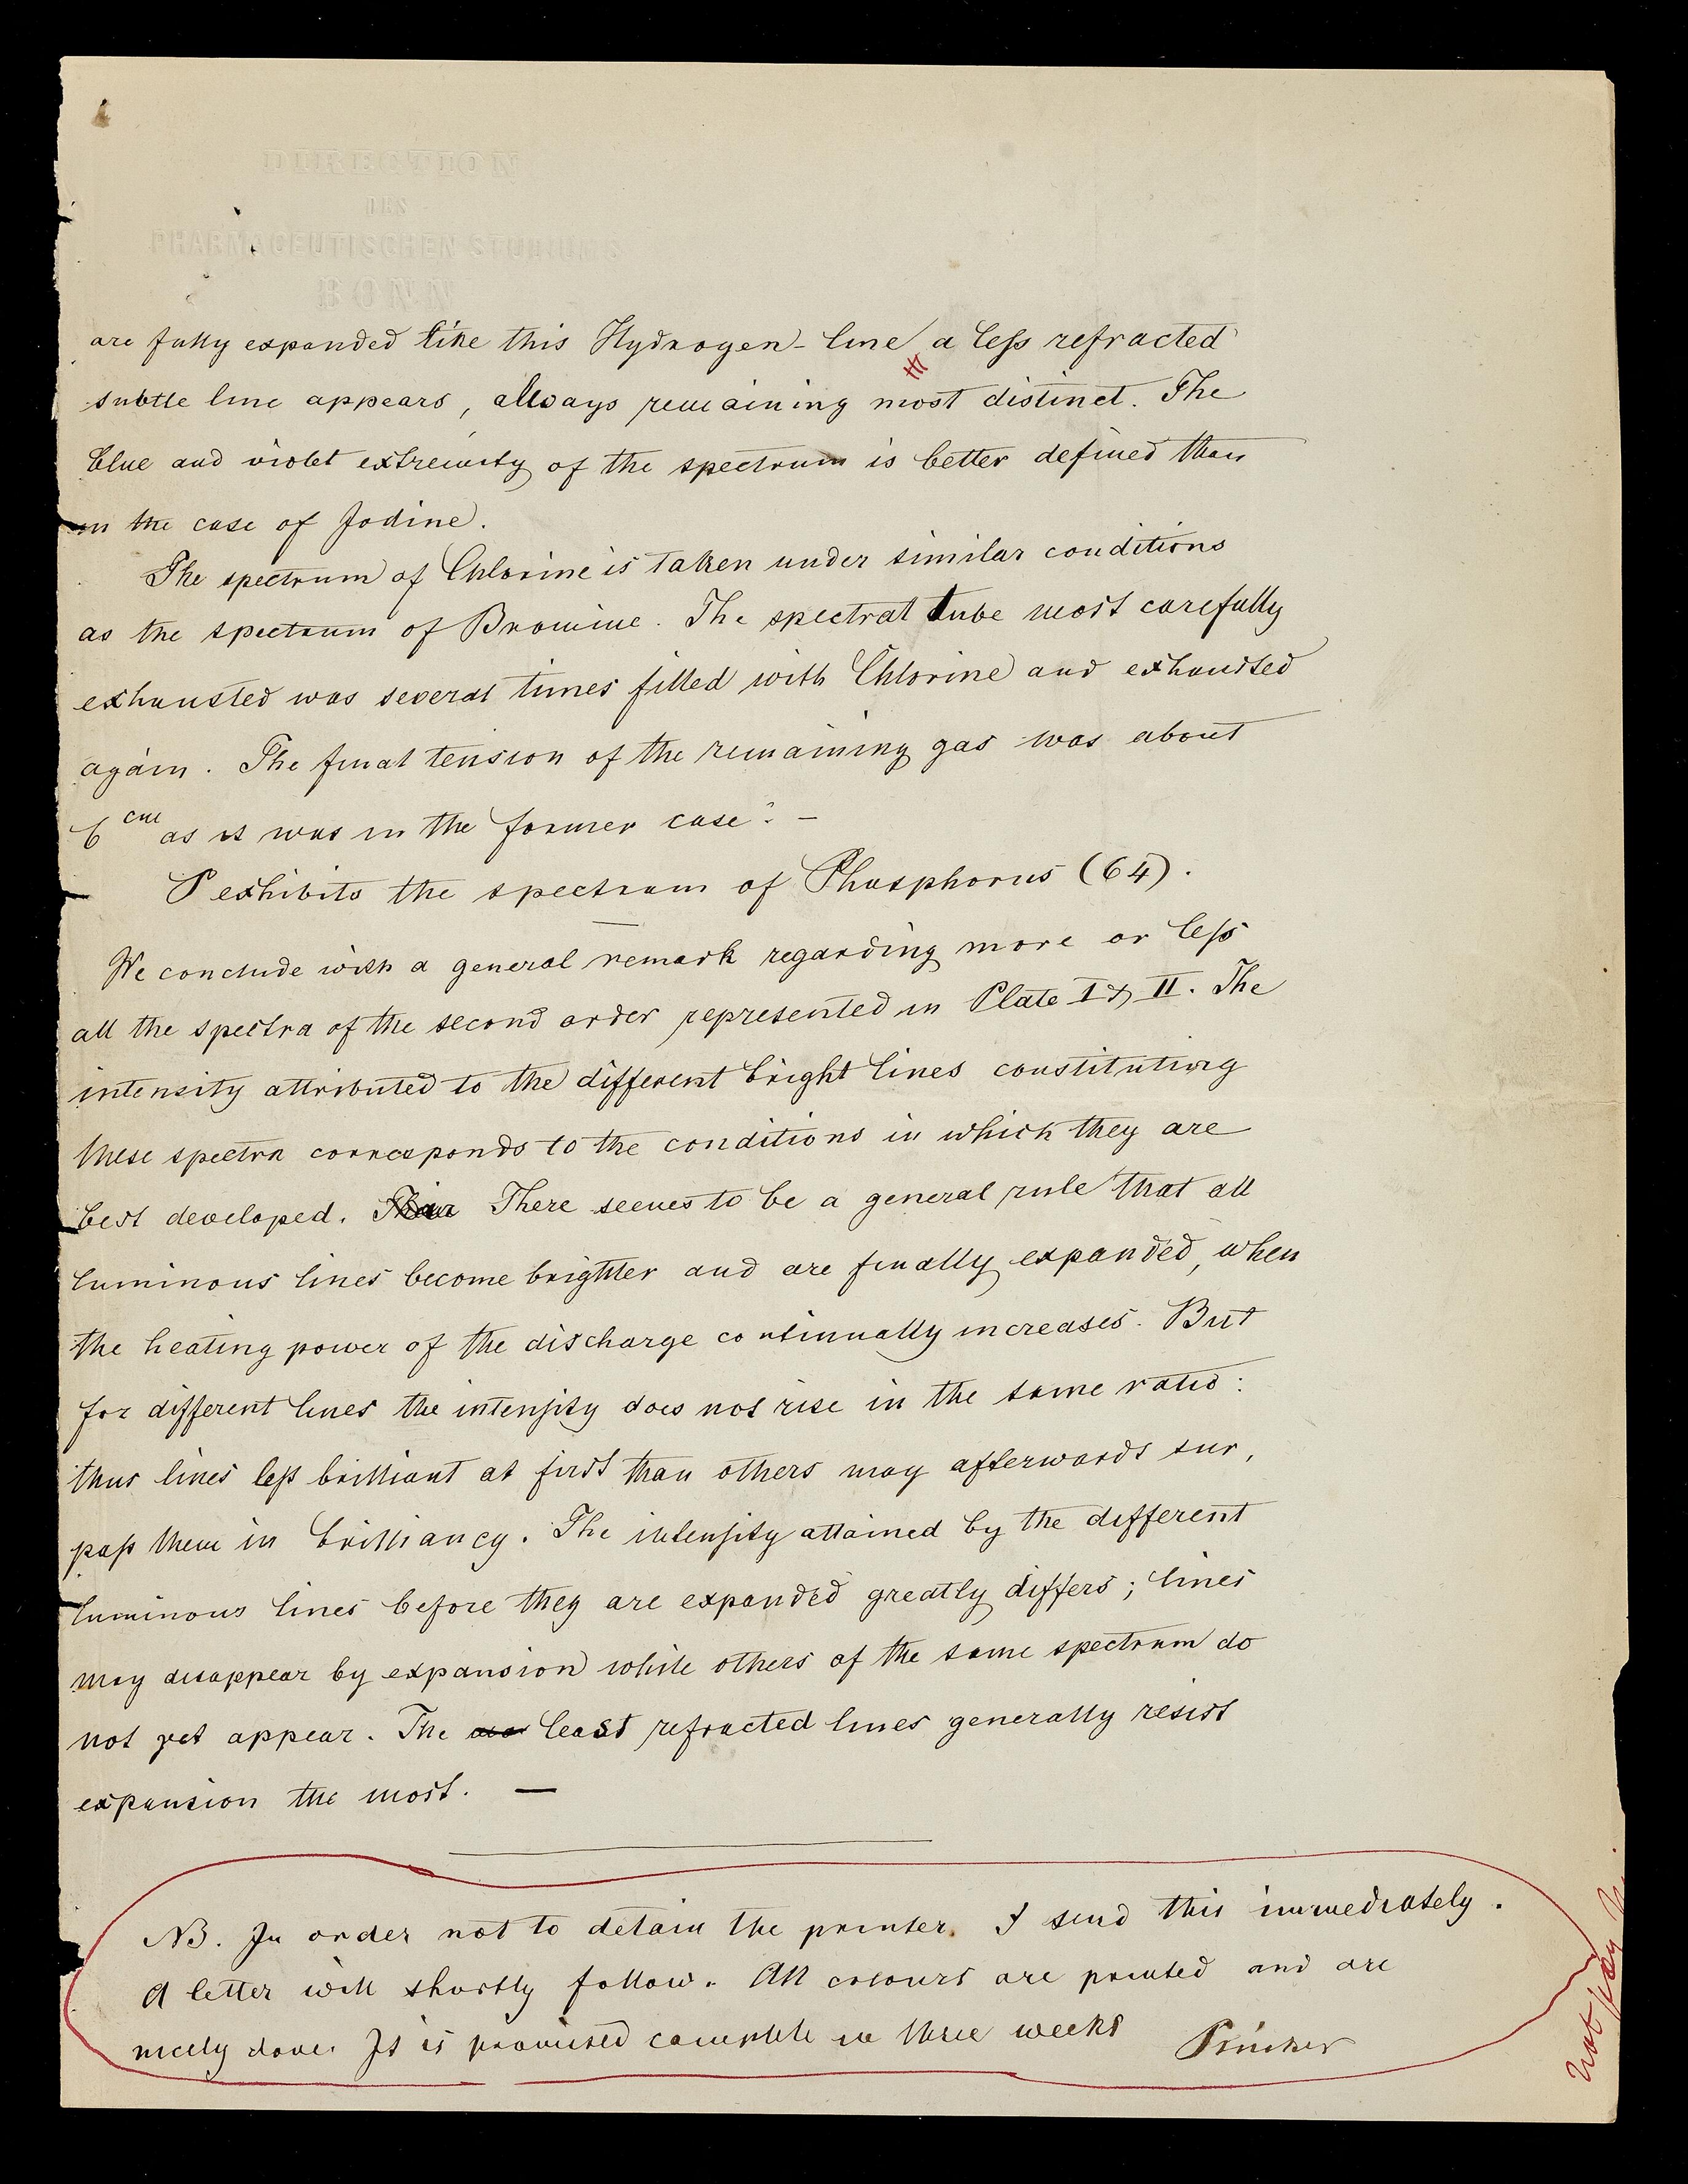 DIRECTION
DES
PHARMACEUTISCHEN STUDIUMS
BONN
are fully expanded like this Hydrogen-line a less refracted
subtle line appears, always remaining most distinct. The
blue and violet extremity of the spectrum is better defined than
in the case of Jodine.
The spectrum of Chlorine is taken under similar conditions
as the spectrum of Bromine. The spectral tube most carefully
exhausted was several times filled with Chlorine and exhausted
again. The final tension of the remaining gas was about
6 cm as it was in the former case. –
P exhibits the spectrum of Phosphorus (64).
We conclude with a general remark regarding more or less
all the spectra of the second order represented in Plate I & II. The
intensity attributed to the different bright lines constituting
these spectra corresponds to the conditions in which they are
best developed. There seems to be a general rule that all
luminous lines become brighter and are finally expanded, when
the heating power of the discharge continually increases. But
for different lines the intensity does not rise in the same ratio:
thus lines less brilliant at first than others may afterwards sur,
pass them in brilliancy. The intensity attained by the different
luminous lines before they are expanded greatly differs; lines
may disappear by expansion while others of the same spectrum do
not yet appear. The least refracted lines generally resist
expansion the most. —
NB. In order not to detain the printer. I send this immediately.
A letter will shortly follow. All colours are printed and are
nicely done. It is promised complete in three weeks